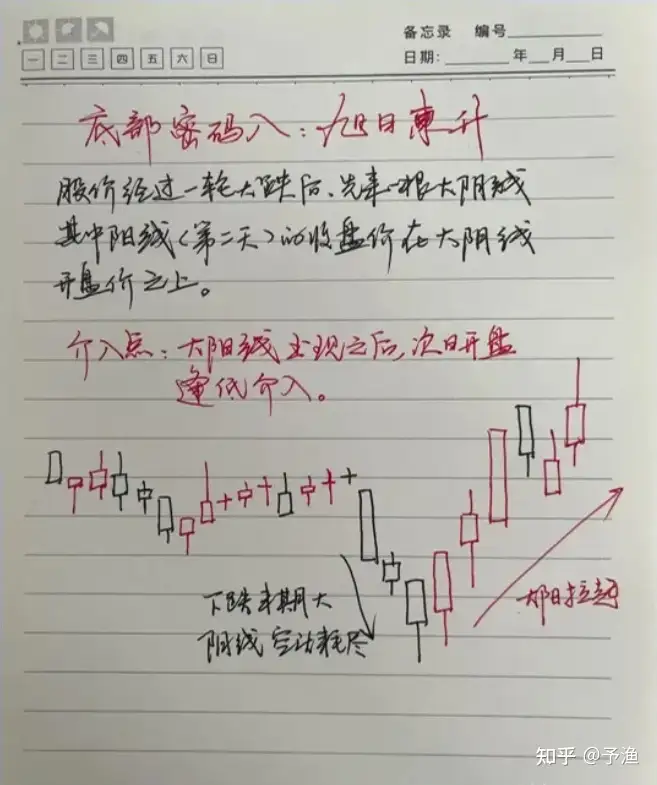 备忘录 编号
一 二 三 四 五 六 日
日期: 年 月 日
底部密码八：旭日東升
股价经过一轮大跌后，先来一根大阴线
其中阳线（第二天）的收盘价在大阴线
开盘价之上。
介入点：大阳线出现之后，次日开盘
逢低介入。
下跌末期大
阴线空动耗尽
旭日拉起
知乎 @予渔